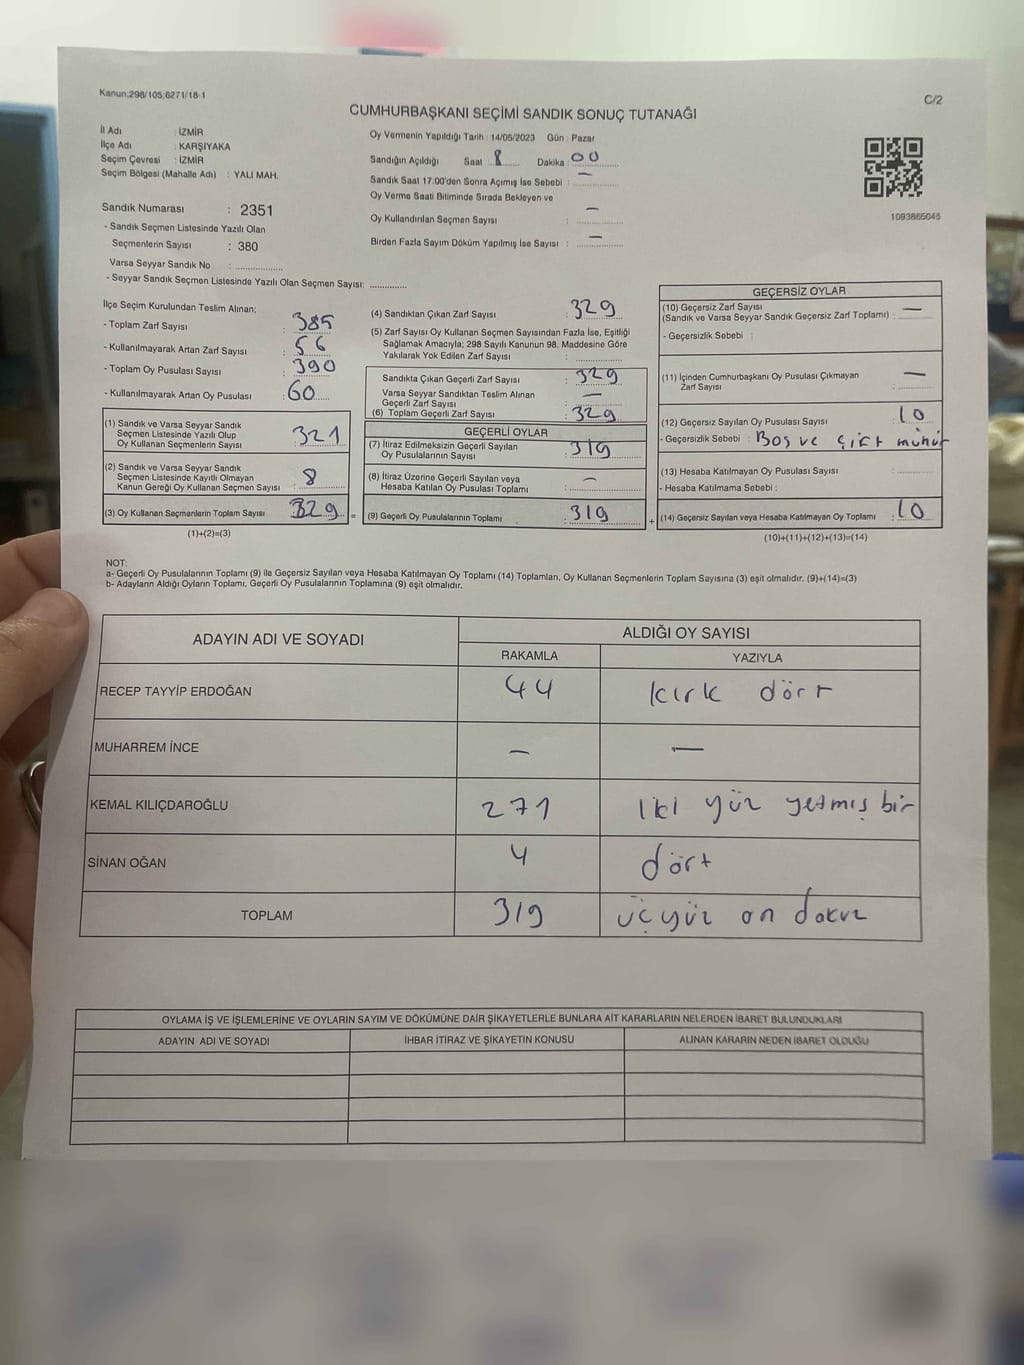 Kanun;298/105;6271/18-1
C/2
CUMHURBAŞKANI SEÇİMİ SANDIK SONUÇ TUTANAĞI
İl Adı : İZMİR
İlçe Adı : KARŞIYAKA
Seçim Çevresi : İZMİR
Seçim Bölgesi (Mahalle Adı) : YALI MAH.
Sandık Numarası : 2351
- Sandık Seçmen Listesinde Yazılı Olan
Seçmenlerin Sayısı : 380
Varsa Seyyar Sandık No : ................
- Seyyar Sandık Seçmen Listesinde Yazılı Olan Seçmen Sayısı: ............
Oy Vermenin Yapıldığı Tarih : 14/05/2023 Gün : Pazar
Sandığın Açıldığı Saat 8 Dakika 00
Sandık Saat 17.00'den Sonra Açımış İse Sebebi : —
Oy Verme Saati Bitiminde Sırada Bekleyen ve
Oy Kullandırılan Seçmen Sayısı : —
Birden Fazla Sayım Döküm Yapılmış İse Sayısı : —
1093865045
İlçe Seçim Kurulundan Teslim Alınan;
- Toplam Zarf Sayısı : 385
- Kullanılmayarak Artan Zarf Sayısı : 56
- Toplam Oy Pusulası Sayısı : 390
- Kullanılmayarak Artan Oy Pusulası : 60
(1) Sandık ve Varsa Seyyar Sandık
Seçmen Listesinde Yazılı Olup
Oy Kullanan Seçmenlerin Sayısı : 321
(2) Sandık ve Varsa Seyyar Sandık
Seçmen Listesinde Kayıtlı Olmayan
Kanun Gereği Oy Kullanan Seçmen Sayısı : 8
(3) Oy Kullanan Seçmenlerin Toplam Sayısı : 329 =
(1)+(2)=(3)
(4) Sandıktan Çıkan Zarf Sayısı : 329
(5) Zarf Sayısı Oy Kullanan Seçmen Sayısından Fazla İse, Eşitliği
Sağlamak Amacıyla; 298 Sayılı Kanunun 98. Maddesine Göre
Yakılarak Yok Edilen Zarf Sayısı : ............
Sandıkta Çıkan Geçerli Zarf Sayısı : 329
Varsa Seyyar Sandıktan Teslim Alınan
Geçerli Zarf Sayısı : —
(6) Toplam Geçerli Zarf Sayısı : 329
GEÇERLİ OYLAR
(7) İtiraz Edilmeksizin Geçerli Sayılan
Oy Pusulalarının Sayısı : 319
(8) İtiraz Üzerine Geçerli Sayılan veya
Hesaba Katılan Oy Pusulası Toplamı : —
(9) Geçerli Oy Pusulalarının Toplamı : 319 +
GEÇERSİZ OYLAR
(10) Geçersiz Zarf Sayısı
(Sandık ve Varsa Seyyar Sandık Geçersiz Zarf Toplamı) : —
- Geçersizlik Sebebi :
(11) İçinden Cumhurbaşkanı Oy Pusulası Çıkmayan
Zarf Sayısı : —
(12) Geçersiz Sayılan Oy Pusulası Sayısı : 10
- Geçersizlik Sebebi : Boş ve çift mühür
(13) Hesaba Katılmayan Oy Pusulası Sayısı : ............
- Hesaba Katılmama Sebebi :
(14) Geçersiz Sayılan veya Hesaba Katılmayan Oy Toplamı : 10
(10)+(11)+(12)+(13)=(14)
NOT:
a- Geçerli Oy Pusulalarının Toplamı (9) ile Geçersiz Sayılan veya Hesaba Katılmayan Oy Toplamı (14) Toplamları, Oy Kullanan Seçmenlerin Toplam Sayısına (3) eşit olmalıdır. (9)+(14)=(3)
b- Adayların Aldığı Oyların Toplamı, Geçerli Oy Pusulalarının Toplamına (9) eşit olmalıdır.
ADAYIN ADI VE SOYADI ALDIĞI OY SAYISI
RAKAMLA YAZIYLA
RECEP TAYYİP ERDOĞAN 44 kırk dört
MUHARREM İNCE — —
KEMAL KILIÇDAROĞLU 271 iki yüz yetmiş bir
SİNAN OĞAN 4 dört
TOPLAM 319 üçyüz on dokuz
OYLAMA İŞ VE İŞLEMLERİNE VE OYLARIN SAYIM VE DÖKÜMÜNE DAİR ŞİKAYETLERLE BUNLARA AİT KARARLARIN NELERDEN İBARET BULUNDUKLARI
ADAYIN ADI VE SOYADI İHBAR İTİRAZ VE ŞİKAYETİN KONUSU ALINAN KARARIN NEDEN İBARET OLDUĞU